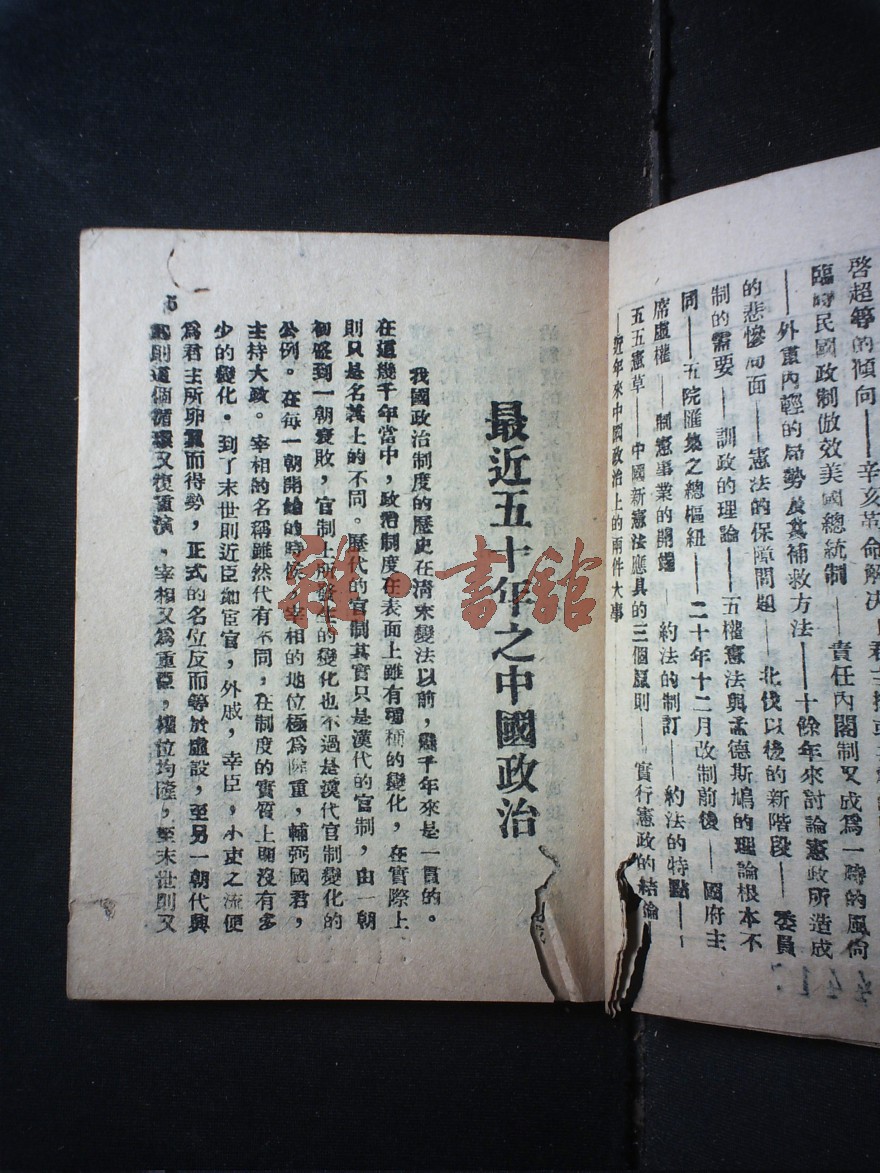 啓超等的傾向——辛亥革命解決
臨時民國政制倣效美國總統制——責任內閣制又成爲一時的風尙
——外重內輕的局勢及其補救方法——十餘年來討論憲政所造成
的悲慘局面——憲法的保障問題——北伐以後的新階段——委員
制的需要——訓政的理論——五權憲法與孟德斯鳩的理論根本不
同——五院匯集之總樞紐——二十年十二月改制前後——國府主
席虛權——制憲事業的開端——約法的制訂——約法的特點——
五五憲草——中國新憲法應具的三個原則——實行憲政的結論
——近年來中國政治上的兩件大事
最近五十年之中國政治
我國政治制度的歷史在清末變法以前，幾千年來是一貫的。
在這幾千年當中，政治制度在表面上雖有種種的變化，在實際上
則只是名義上的不同。歷代的官制其實只是漢代的官制，由一朝
初盛到一朝衰敗，官制上所發生的變化也不過是漢代官制變化的
公例。在每一朝開始的時候，宰相的地位極爲隆重，輔弼國君，
主持大政。宰相的名稱雖然代有不同，在制度的實質上則沒有多
少的變化。到了末世則近臣如宦官，外戚，幸臣，小吏之流便
爲君主所卵翼而得勢，正式的名位反而等於虛設，至另一朝代興
起則這個循環又復重演，宰相又爲重臣，權位均隆，至末世則又
5
雜·書館